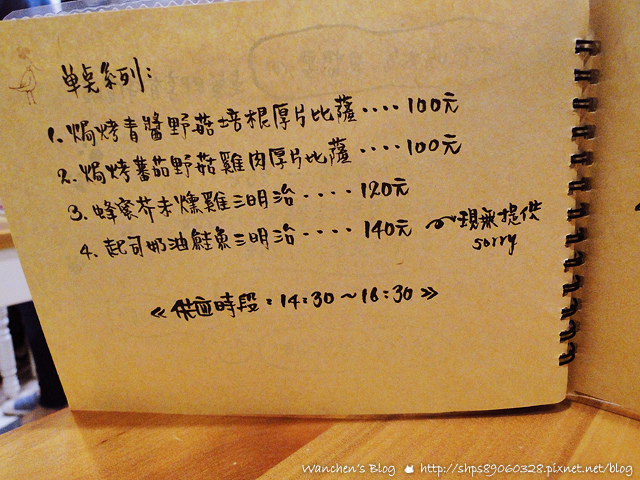 單點系列：
1. 焗烤青醬野菇培根厚片比薩‥‥100元
2. 焗烤蕃茄野菇雞肉厚片比薩‥‥100元
3. 蜂蜜芥末燻雞三明治‥‥120元
4. 起司奶油鮭魚三明治‥‥140元 現無提供
sorry
《供應時段：14:30～16:30》
Wanchen's Blog http://shps89060328.pixnet.net/blog